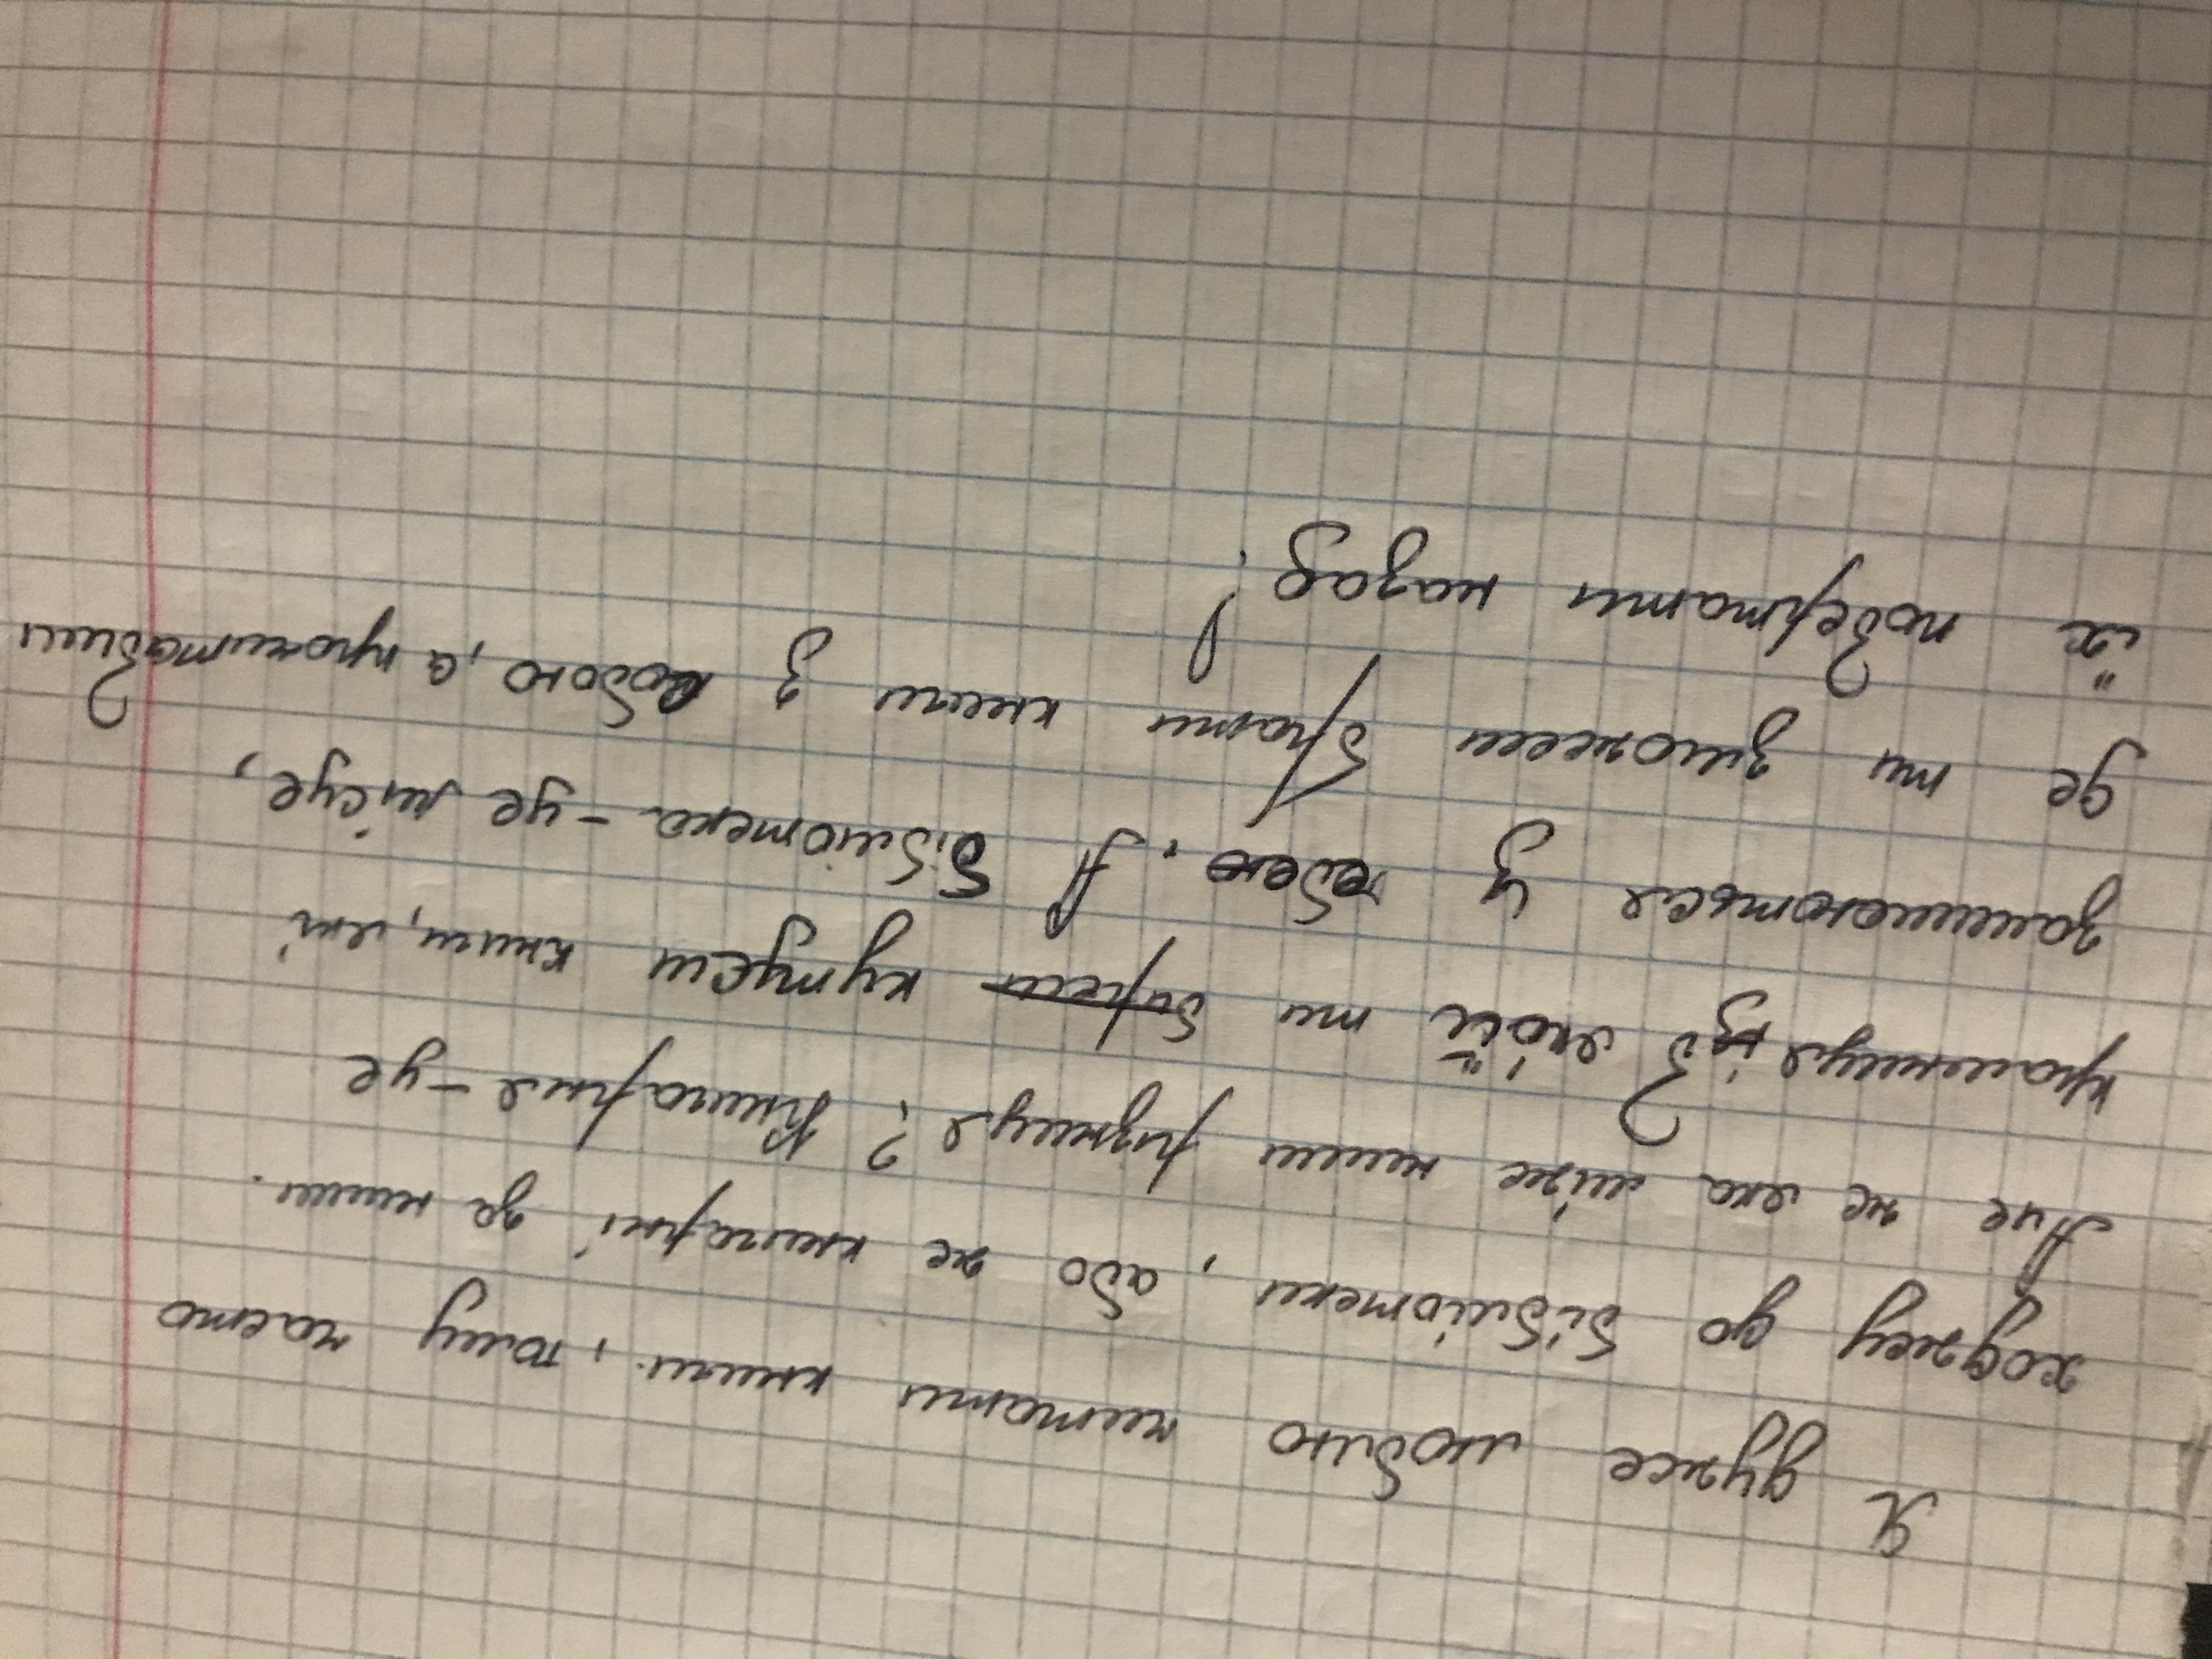 Я дуже люблю читати книги, тому часто
ходжу до бібліотеки, або же книгарні за ними.
Але же яка між ними різниця? Книгарня - це
крамниця із якої ти купуєш книги, які
залишаються у тебе. А бібліотека - це місце,
де ти зможеш брати книги з собою, а прочитавши
їх повертати назад!